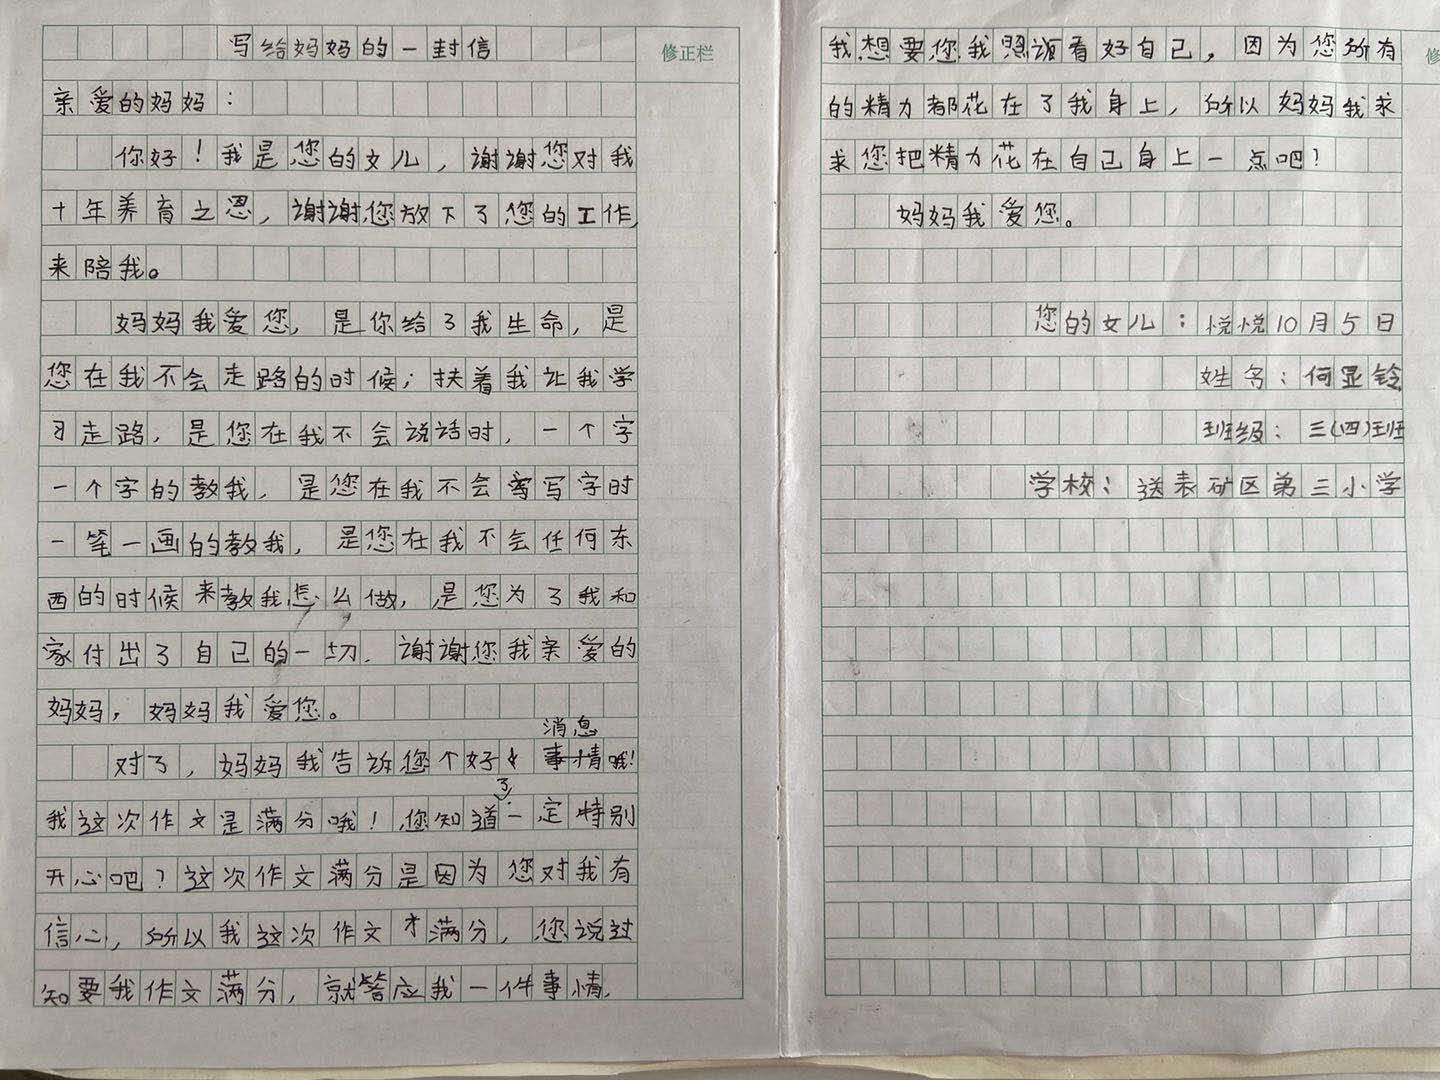 写给妈妈的一封信
修正栏
亲爱的妈妈：
你好！我是您的女儿，谢谢您对我
十年养育之恩，谢谢您放下了您的工作，
来陪我。
妈妈我爱您，是你给了我生命，是
您在我不会走路的时候；扶着我让我学
习走路，是您在我不会说话时，一个字
一个字的教我，是您在我不会写字时
一笔一画的教我，是您在我不会任何东
西的时候来教我怎么做，是您为了我和
家付出了自己的一切，谢谢您我亲爱的
妈妈，妈妈我爱您。
对了，妈妈我告诉您个好消息哦！
我这次作文是满分哦！您知道了一定特别
开心吧？这次作文满分是因为您对我有
信心，所以我这次作文才满分，您说过
知要我作文满分，就答应我一件事情，
我想要您我照顾看好自己，因为您所有
的精力都花在了我身上，所以妈妈我求
求您把精力花在自己身上一点吧！
妈妈我爱您。
您的女儿：悦悦10月5日
姓名：何显铃
班级：三(四)班
学校：送表矿区第三小学
修